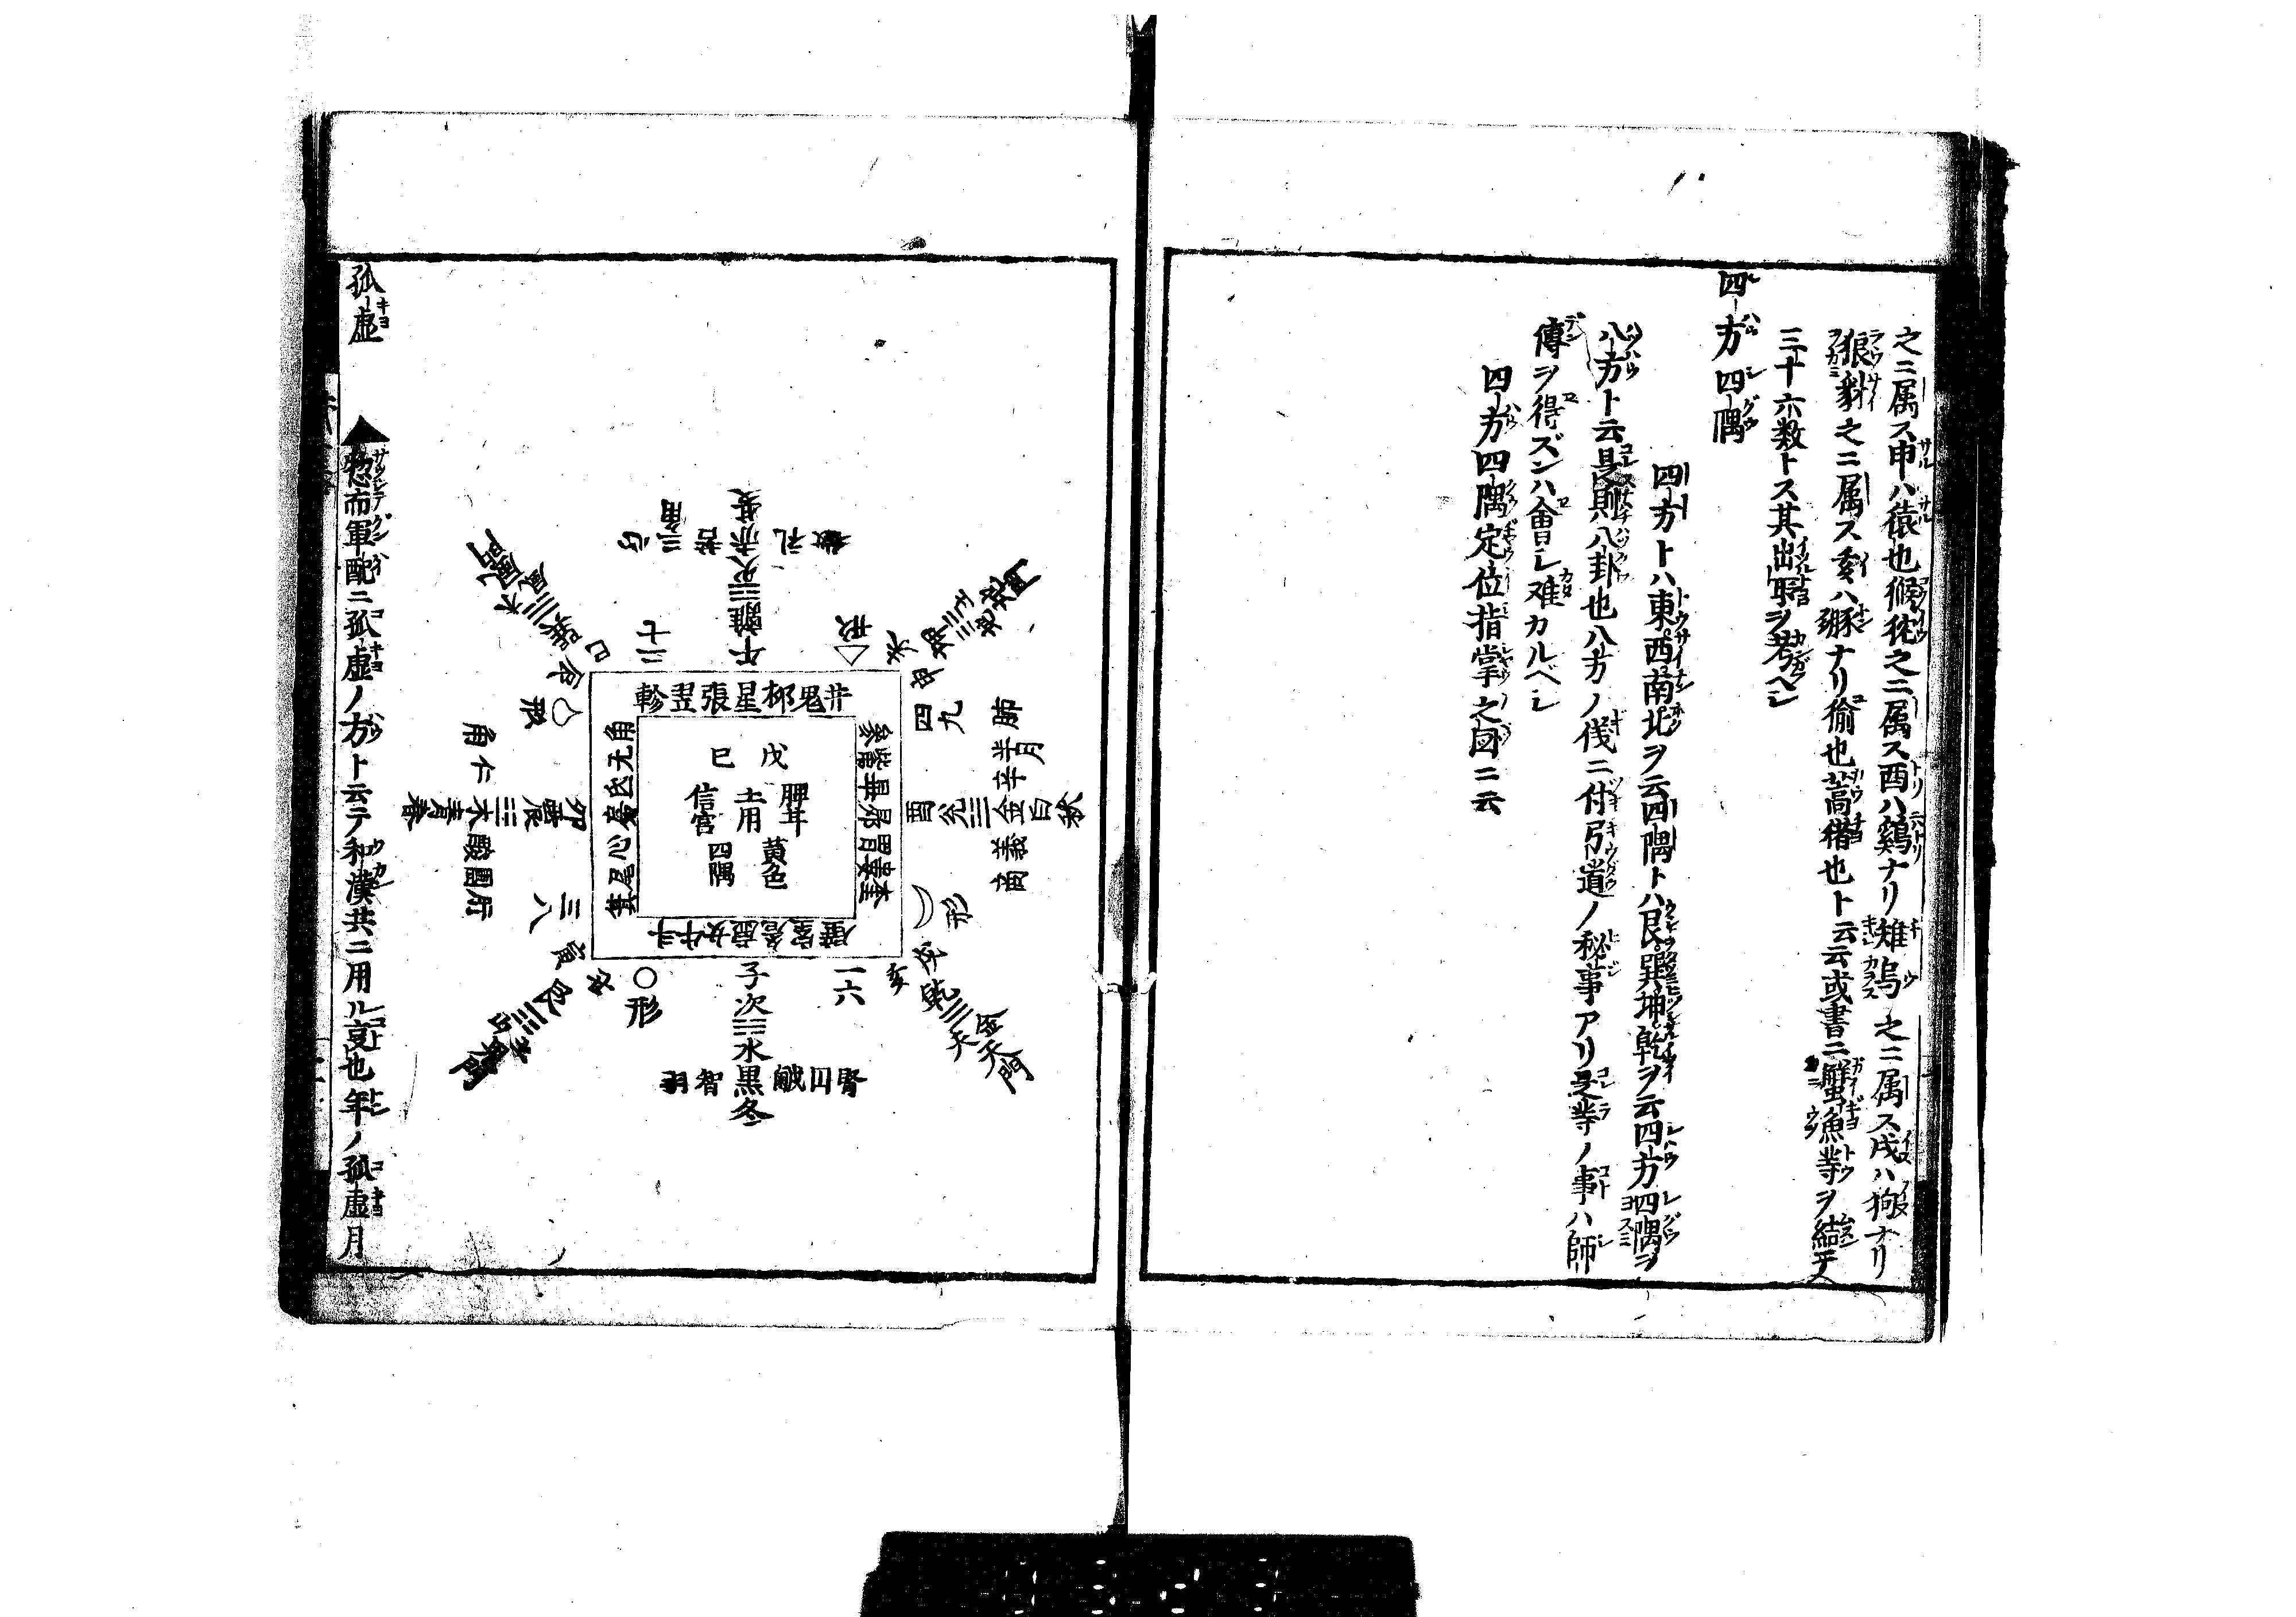 之ニ属ス申ハ猿也猴狖之ニ属ス酉ハ鷄ナリ雉烏之ニ属ス戌ハ狗ナリ
狼豺之ニ属ス亥ハ豚ナリ偷也蒿猪也ト云云或書ニ蟹魚等ヲ結テ
三十六数トス其出所ヲ考ヘシ
四方四隅
四方トハ東西南北ヲ云四隅トハ艮巽坤乾ヲ云四方四隅ヲ
八方ト云是則八卦也八方ノ伐ニ付弓道ノ秘事アリ是等ノ事ハ師
傳ヲ得ズンハ會シ难カルベシ
四方四隅定位指掌之図ニ云
夏
赤
火
離
午
二七
形
未
申
坤
巳
巽
木
風
辰
形
井鬼柳星張翌軫
角亢氐房心尾箕
奎婁胃昴畢觜參
斗牛女虚危室壁
戊
巳
脾
土用
信宮
黄色
四隅
四九
肺
辛
酉
兌
金
白
秋
義
商
形
角仁
卯
震
木
青
春
酸
肝
三八
寅
艮
丑
形
子
坎
水
黒
冬
一六
智
鹹
腎
亥
乾
天
天門
孤虚
▲惣而軍配ニ孤虚ノ方ト云テ和漢共ニ用ル㕝也年ノ孤虚月